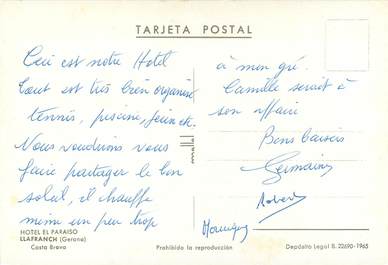 TARJETA POSTAL
Ceci est notre Hotel
tout est très bien organisé
tennis, piscine, jeux etc.
Nous voudrions vous
faire partager le bon
soleil, il chauffe
même un peu trop
à mon gré
Camille serait à
son affaire
Bons baisers
Germaine
Robert
HOTEL EL PARAISO
LLAFRANCH (Gerona)
Costa Brava
Prohibida la reproducción
Depósito Legal B. 22690-1965